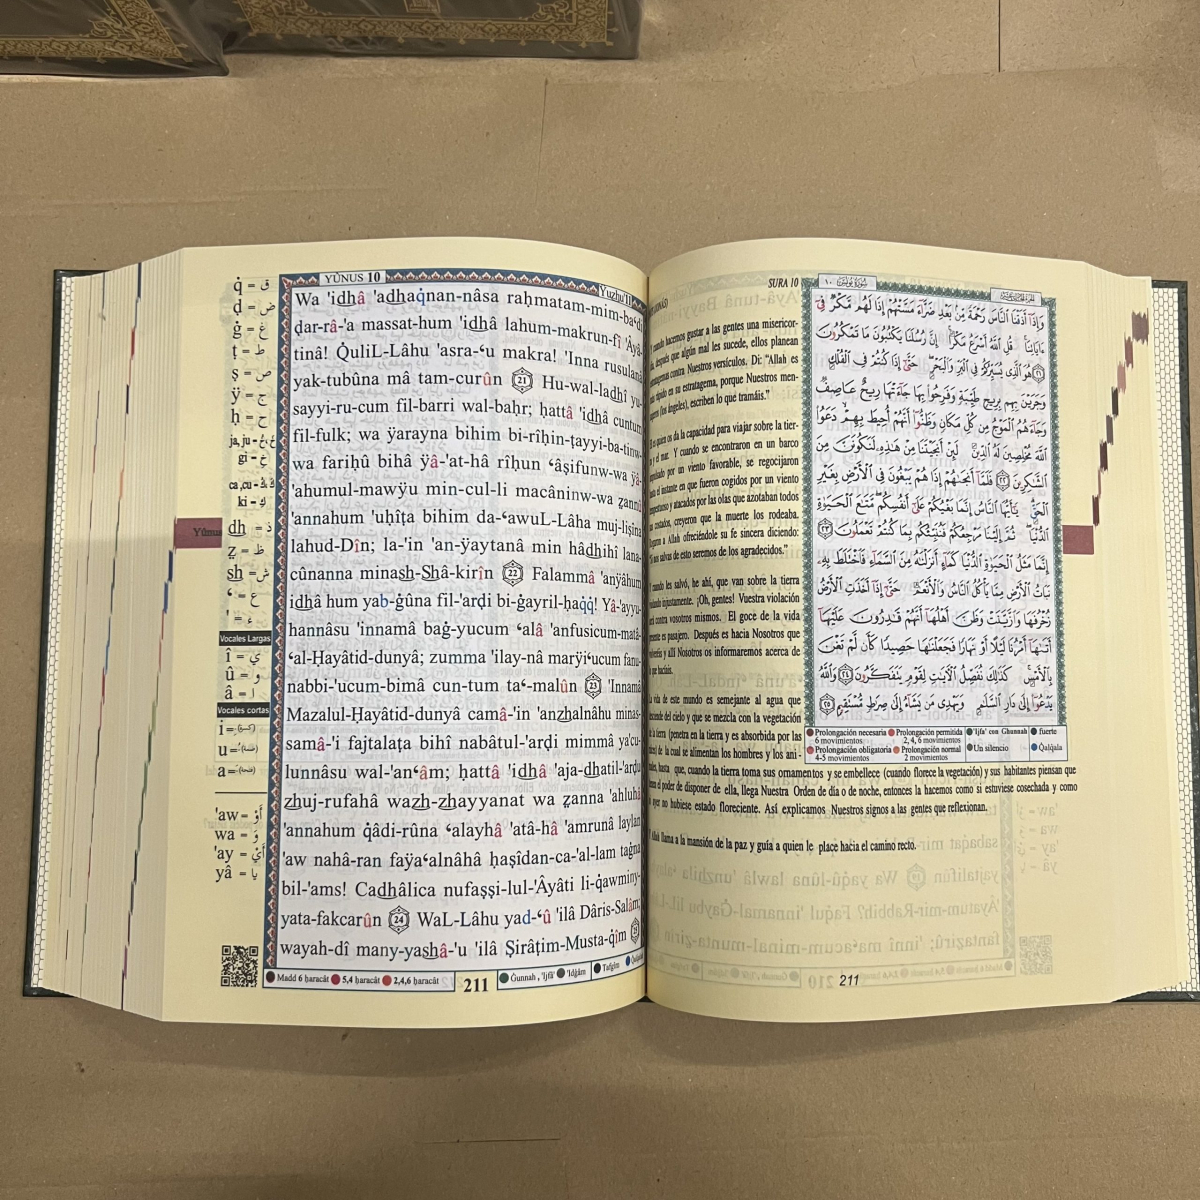 q̇ = ق
ḍ = ض
ġ = غ
ṭ = ط
ṣ = ص
ÿ = ج
ḥ = ح
gi = غِ
ki = كِ
dh = ذ
ẓ = ظ
sh = ش
ʻ = ع
' = ء
Vocales Largas
î = ي
û = و
â = ا
Vocales cortas
i =
u =
a =
'aw = أَوْ
wa = وَ
'ay = أَيْ
yâ = يا
Yûnus
YÛNUS 10
Wa 'idhâ 'adhaq̇nan-nâsa raḥmatam-mim-baʻdi
ḍar-râ-'a massat-hum 'idhâ lahum-makrun-fî 'Âyâ-
tinâ! Q̇uliL-Lâhu 'asra-ʻu makra! 'Inna rusulanâ
yak-tubûna mâ tam-curûn 21 Hu-wal-ladhî yu-
sayyi-ru-cum fil-barri wal-baḥr; ḥattâ 'idhâ cuntum
fil-fulk; wa ÿarayna bihim bi-rîḥin-ṭayyi-ba-tinw-
wa fariḥû bihâ ÿâ-'at-hâ rîḥun ʻâṣifunw-wa ÿâ-
'ahumul-mawÿu min-cul-li macâninw-wa ẓannû
'annahum 'uḥîṭa bihim da-ʻawuL-Lâha muj-liṣîna
lahud-Dîn; la-'in 'an-ÿaytanâ min hâdhihî lana-
cûnanna minash-Shâ-kirîn 22 Falammâ 'anÿâhum
idhâ hum yab-ġûna fil-'arḍi bi-ġayril-ḥaq̇q̇! Yâ-'ayyu-
hannâsu 'innamâ baġ-yucum ʻalâ 'anfusicum-matâ-
ʻal-Ḥayâtid-dunyâ; zumma 'ilay-nâ marÿiʻucum fanu-
nabbi-'ucum-bimâ cun-tum taʻ-malûn 23 'Innamâ
Mazalul-Ḥayâtid-dunyâ camâ-'in 'anzhalnâhu minas-
samâ-'i fajtalaṭa bihî nabâtul-'arḍi mimmâ ya'cu-
lunnâsu wal-'anʻâm; ḥattâ 'idhâ 'aja-dhatil-'arḍu
zhuj-rufahâ wazh-zhayyanat wa ẓanna 'ahluhâ
'annahum q̇âdi-rûna ʻalayhâ 'atâ-hâ 'amrunâ laylan
'aw nahâ-ran faÿaʻalnâhâ ḥaṣîdan-ca-'al-lam taġna
bil-'ams! Cadhâlica nufaṣṣi-lul-'Âyâti li-q̇awminy-
yata-fakcarûn 24 WaL-Lâhu yad-ʻû 'ilâ Dâris-Salâm;
wayah-dî many-yashâ-'u 'ilâ Ṣirâṭim-Musta-q̇îm 25
Madd 6 ḥaracât 5,4 ḥaracât 2,4,6 ḥaracât 211 Ġunnah , 'Ijfâ' 'Idġâm Tafġîm
SURA 10
hacemos gustar a las gentes una misericor-
después que algún mal les sucede, ellos planean
contra Nuestros versículos. Di: “Allah es
rápido en su estratagema, porque Nuestros men-
(los ángeles), escriben lo que tramáis.”
quien os da la capacidad para viajar sobre la tier-
y el mar. Y cuando se encontraron en un barco
por un viento favorable, se regocijaron
el instante en que fueron cogidos por un viento
y atacados por las olas que azotaban todos
costados, creyeron que la muerte los rodeaba.
a Allah ofreciéndole su fe sincera diciendo:
nos salvas de esto seremos de los agradecidos.”
cuando les salvó, he ahí, que van sobre la tierra
injustamente. ¡Oh, gentes! Vuestra violación
contra vosotros mismos. El goce de la vida
es pasajero. Después es hacia Nosotros que
y allí Nosotros os informaremos acerca de
hacíais.
vida de este mundo es semejante al agua que
desciende del cielo y que se mezcla con la vegetación
la tierra (penetra en la tierra y es absorbida por las
de la cual se alimentan los hombres y los ani-
hasta que, cuando la tierra toma sus ornamentos y se embellece (cuando florece la vegetación) y sus habitantes piensan que
el poder de disponer de ella, llega Nuestra Orden de día o de noche, entonces la hacemos como si estuviese cosechada y como
ayer no hubiese estado floreciente. Así explicamos Nuestros signos a las gentes que reflexionan.
Allah llama a la mansión de la paz y guía a quien le place hacia el camino recto.
وَإِذَا أَذَقْنَا النَّاسَ رَحْمَةً مِّنْ بَعْدِ ضَرَّاءَ مَسَّتْهُمْ إِذَا لَهُم مَّكْرٌ فِي
ءَايَاتِنَا قُلِ اللَّهُ أَسْرَعُ مَكْرًا إِنَّ رُسُلَنَا يَكْتُبُونَ مَا تَمْكُرُونَ
٢١ هُوَ الَّذِي يُسَيِّرُكُمْ فِي الْبَرِّ وَالْبَحْرِ حَتَّىٰ إِذَا كُنتُمْ فِي الْفُلْكِ
وَجَرَيْنَ بِهِم بِرِيحٍ طَيِّبَةٍ وَفَرِحُوا بِهَا جَاءَتْهَا رِيحٌ عَاصِفٌ
وَجَاءَهُمُ الْمَوْجُ مِن كُلِّ مَكَانٍ وَظَنُّوا أَنَّهُمْ أُحِيطَ بِهِمْ دَعَوُا
اللَّهَ مُخْلِصِينَ لَهُ الدِّينَ لَئِنْ أَنجَيْتَنَا مِنْ هَٰذِهِ لَنَكُونَنَّ مِنَ
الشَّاكِرِينَ ٢٢ فَلَمَّا أَنجَاهُمْ إِذَا هُمْ يَبْغُونَ فِي الْأَرْضِ بِغَيْرِ
الْحَقِّ يَا أَيُّهَا النَّاسُ إِنَّمَا بَغْيُكُمْ عَلَىٰ أَنفُسِكُم مَّتَاعَ الْحَيَاةِ
الدُّنْيَا ثُمَّ إِلَيْنَا مَرْجِعُكُمْ فَنُنَبِّئُكُم بِمَا كُنتُمْ تَعْمَلُونَ ٢٣
إِنَّمَا مَثَلُ الْحَيَاةِ الدُّنْيَا كَمَاءٍ أَنزَلْنَاهُ مِنَ السَّمَاءِ فَاخْتَلَطَ بِهِ
نَبَاتُ الْأَرْضِ مِمَّا يَأْكُلُ النَّاسُ وَالْأَنْعَامُ حَتَّىٰ إِذَا أَخَذَتِ الْأَرْضُ
زُخْرُفَهَا وَازَّيَّنَتْ وَظَنَّ أَهْلُهَا أَنَّهُمْ قَادِرُونَ عَلَيْهَا
أَتَاهَا أَمْرُنَا لَيْلًا أَوْ نَهَارًا فَجَعَلْنَاهَا حَصِيدًا كَأَن لَّمْ تَغْنَ
بِالْأَمْسِ كَذَٰلِكَ نُفَصِّلُ الْآيَاتِ لِقَوْمٍ يَتَفَكَّرُونَ ٢٤ وَاللَّهُ
يَدْعُو إِلَىٰ دَارِ السَّلَامِ وَيَهْدِي مَن يَشَاءُ إِلَىٰ صِرَاطٍ مُّسْتَقِيمٍ ٢٥
Prolongación necesaria Prolongación permitida 'Ijfa' con Ghunnah fuerte
6 movimientos 2, 4, 6 movimientos
Prolongación obligatoria Prolongación normal Un silencio Qalqala
4-5 movimientos 2 movimientos
211